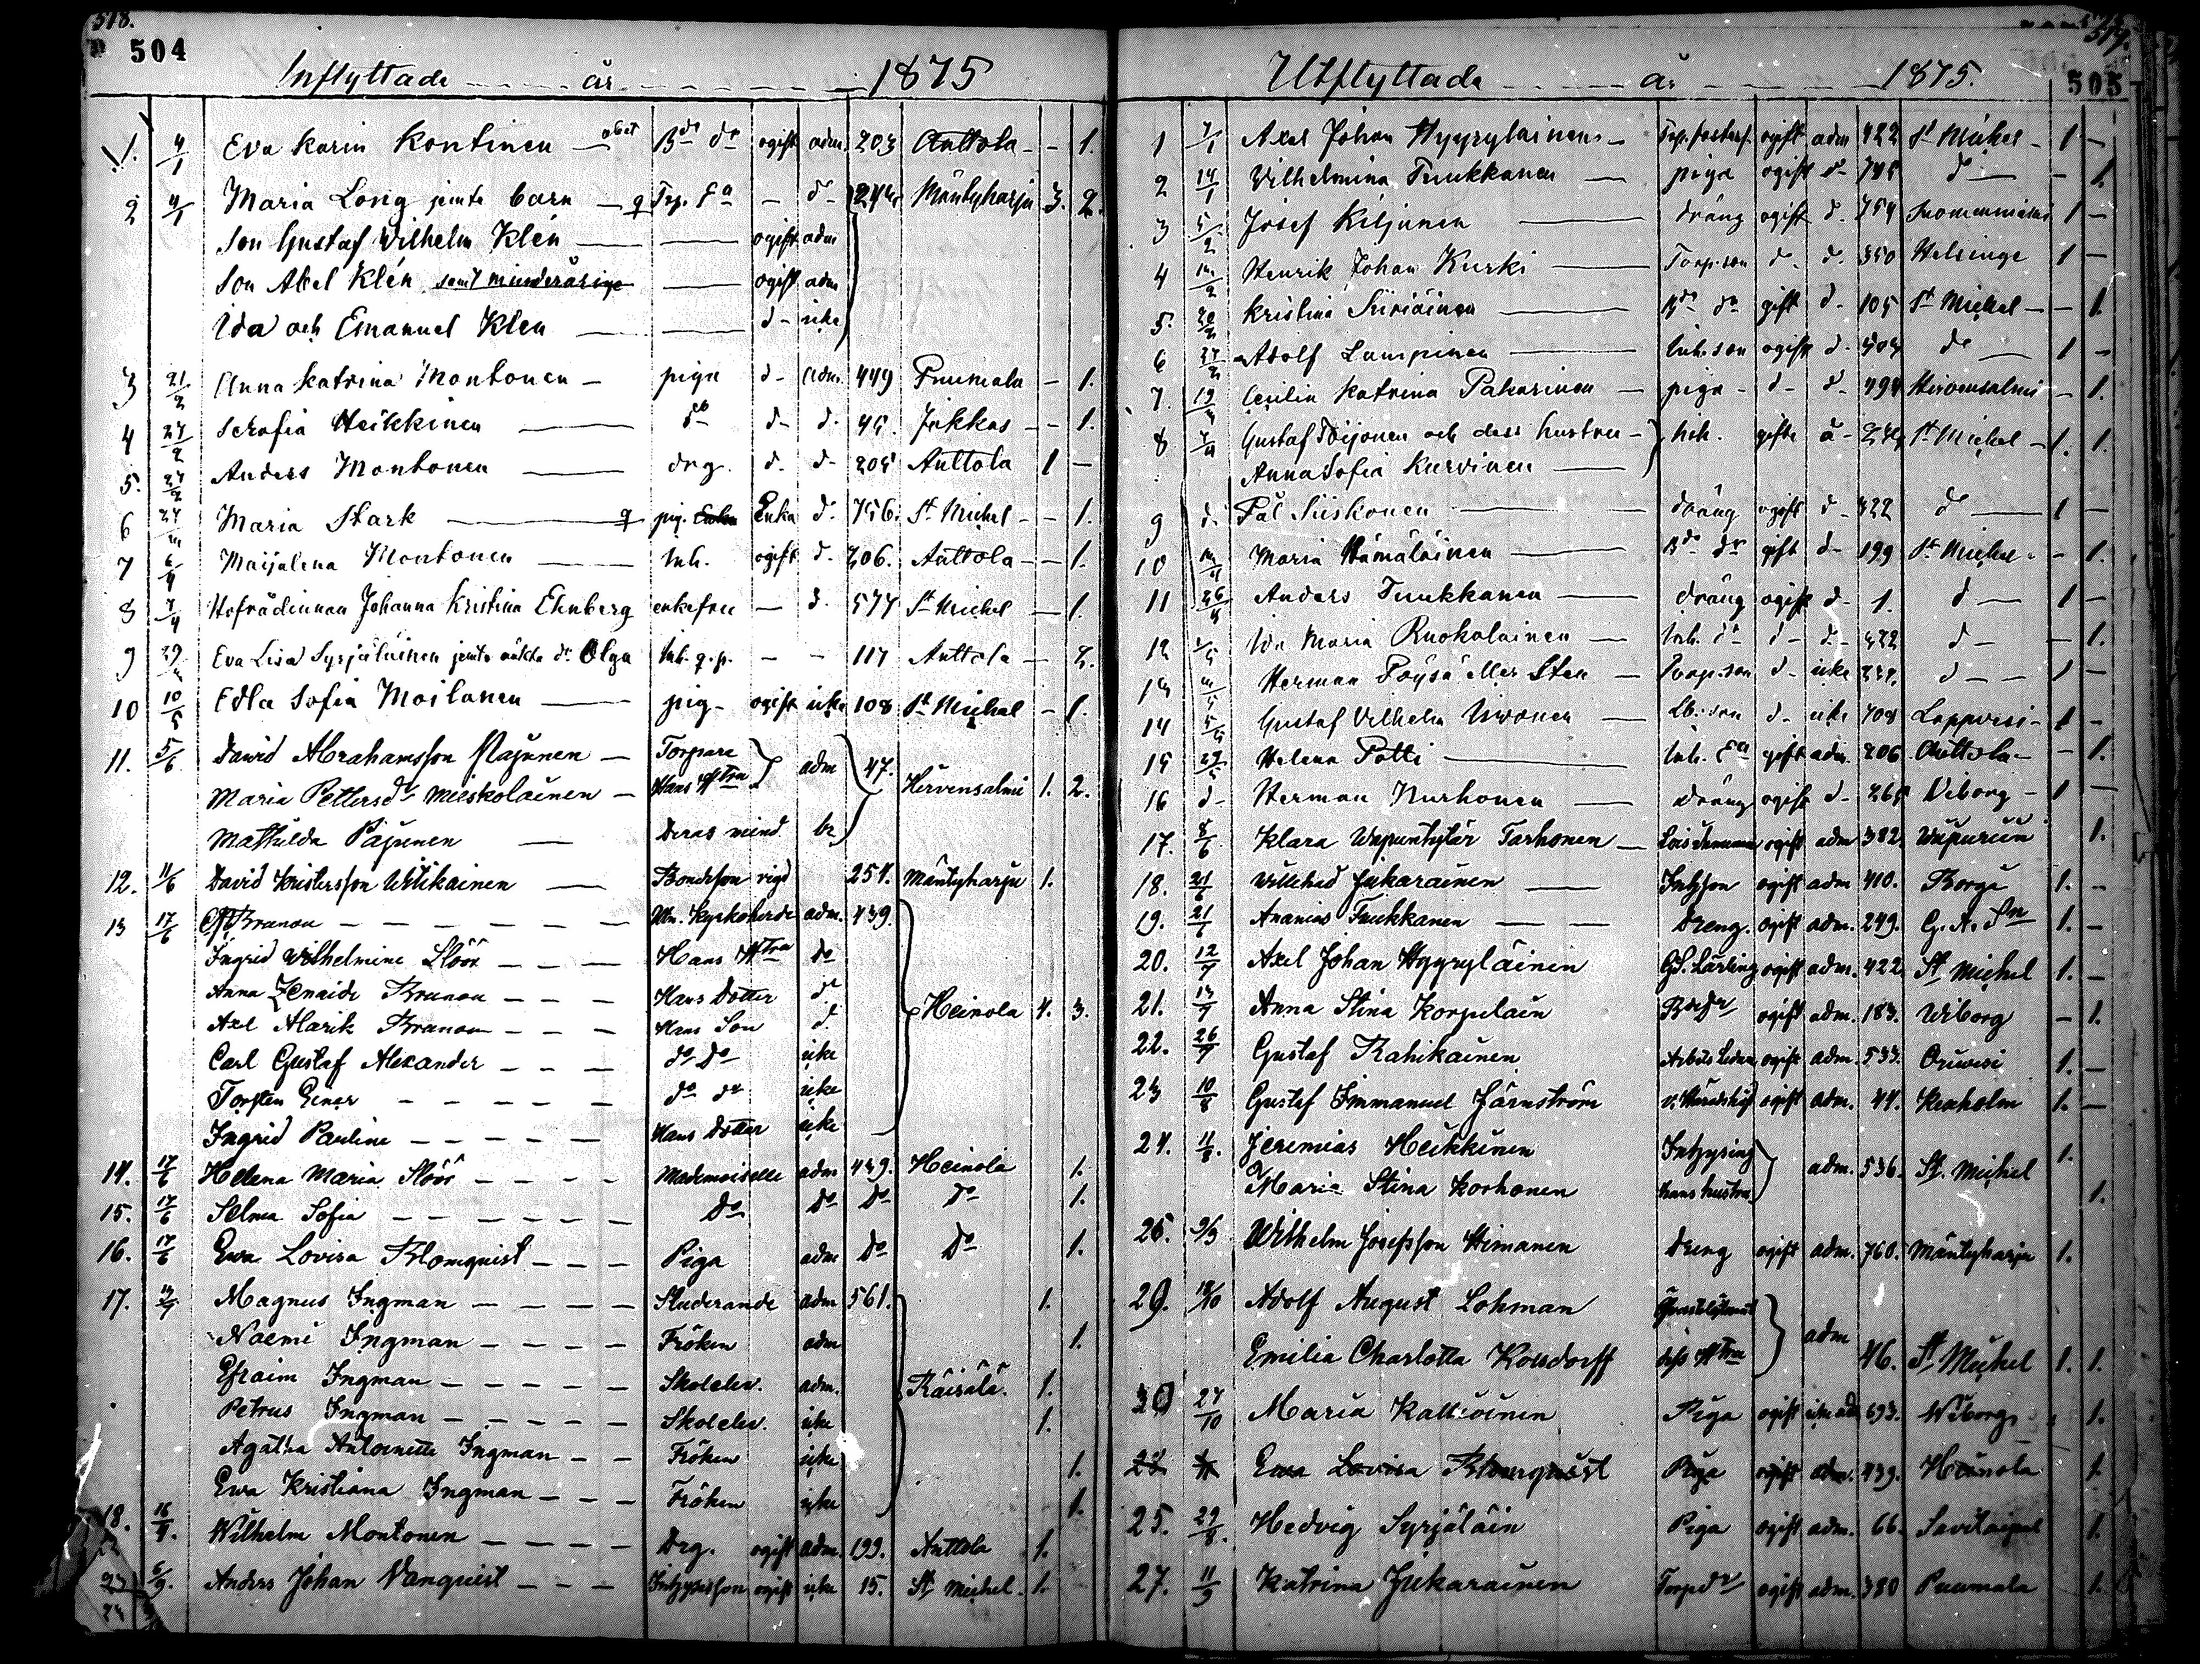 518.
504
Inflyttade år 1875
1. 4/1 Eva Karin Kontinen ogift adm. 203 Anttola - 1.
2 4/1 Maria Long jemte barn Mäntyharju 3. 2.
Son Gustaf Vilhelm Klén ogift adm
Son Abel Klén samt minderåriga ogift adm
Ida och Emanuel Klén d- icke
3 21/2 Anna Katrina Montonen piga d- adm. 449 Puumala - 1.
4 27/2 Serafia Heikkinen do d- d- Jokkas - 1.
5. 27/2 Anders Montonen drg. d. d- 205 Anttola 1 -
6 Maria Stark pig. Enka Enka d. 756. St Michel - 1.
7 6/4 Maijalena Montonen Inh. ogift d. 206. Anttola - 1.
8 7/4 Hofrådinnan Johanna Kristina Ehnberg enkefru - d. 577 St Michel - 1.
9 Eva Lisa Syrjäläinen jemte oäkta dr Olga Inh. - - 117 Anttola - 2.
10 10/5 Edla Sofia Moilanen pig- ogift icke 108 St Michel - 1.
11. 5/6 David Abrahamsson Pajunen Torpare adm 47. Hirvensalmi 1. 2.
Maria Pettersdr Mieskolainen Hans Hstru
Mathilda Pajunen Deras mind. br
12. 11/6 David Kristersson Utikainen Bondeson 251. Mäntyharju 1.
13 17/6 Brunou Kyrkoherde adm. 439. Heinola 4. 3.
Ingrid Wilhelmine Slöör Hans Hstru do
Anna Zenaide Brunou Hans Dotter do
Axel Alarik Brunou Hans Son d.
Carl Gustaf Alexander do Do icke
Torsten Einar do do icke
Ingrid Pauline Hans Dotter icke
14. 17/6 Helena Maria Slöör Mademoiselle adm 439. Heinola 1.
15. 17/6 Selma Sofia Do Do Do Do 1.
16. 17/6 Ewa Lovisa Blomquist Piga adm Do Do 1.
17. Magnus Ingman Studerande adm 561. 1.
Noemi Ingman Fröken adm 1.
Efraim Ingman Skolelev. adm. Räisälä. 1.
Petrus Ingman Skolelev. icke 1.
Agatha Antoinette Ingman Fröken icke 1.
Ewa Kristiana Ingman Fröken icke 1.
18. 16/9. Wilhelm Montonen Drg. ogift adm. 199. Anttola 1.
Anders Johan Vanquist ogift icke 15. St Michel. 1.
519.
505
Utflyttade år 1875.
1 7/1 Axel Johan Hyyryläinen ogift adm 422 St Michel - 1 -
2 14/1 Vilhelmina Tuukkanen piga ogift d- d - 1
3 5/2 Josef Kiljunen dräng ogift d. 754 1 -
4 Henrik Johan Kurki Torp.son d- d. 350 Helsinge 1 -
5. Kristina Siiriäinen gift d- 105 St Michel - 1.
6 27/2 Adolf Lampinen Inh. son ogift d- do 1 -
7. Cecilia Katrina Pakarinen piga - d- d- 494 Hirvensalmi - 1.
8 Gustaf Pöijonen och dess hustru Inh. gifta St Michel - 1. 1.
Anna Sofia Kurvinen
9 d. Pål Siiskonen dräng ogift d- 422 do 1 -
10 Maria Hämäläinen gift d- 199 St Michel - 1.
11 26/4 Anders Tuukkanen dräng ogift d- 1. d 1 -
12 Ida Maria Ruokolainen Inh. dr d- d- 422 d - 1.
13 Herman Pöysä eller Sten Torp.son d- icke d 1 -
14 Gustaf Vilhelm d- icke 708 Lappvesi - 1 -
15 Helena Potti gift adm. 206 Anttola - 1.
16 d- Herman Nurhonen dräng ogift d- Viborg - 1 -
17. 8/6 Klara Tarhonen ogift adm 382. 1.
18. 21/6 Willehad Jukarainen ogift adm 410. Borgå 1. -
19. 21/6 Ananias Tuukkanen Dreng. ogift adm. 249. 1. -
20. 12/7 Axel Johan Hyyryläinen ogift adm. 422 St Michel 1. -
21. 13/7 Anna Stina Korpelain ogift adm. 183. Wiborg - 1.
22. 26/7 Gustaf Rahikainen ogift adm. 533. Oriwesi 1. -
23 10/8 Gustaf Immanuel Järnström ogift adm. 44. Kexholm 1. -
24. 11/8. Jeremias Heikkinen adm. 536. St. Michel 1.
Maria Stina Korhonen hans hustru 1.
26. Wilhelm Josefsson Himanen Dreng ogift adm. 760. Mäntyharju 1.
29. Adolf August Lohman adm 46. St Michel 1. 1.
Emilia Charlotta Kossdorff
30 27/10 Maria Piga ogift 693. Wiborg 1.
Ewa Lovisa Blomquist Piga ogift adm. 439. Heinola 1.
25. 29/8. Hedvig Syrjäläin Piga ogift adm. 66. Savitaipal 1.
27. 11/9 Katrina Jukarainen ogift adm. 380 Puumala 1.